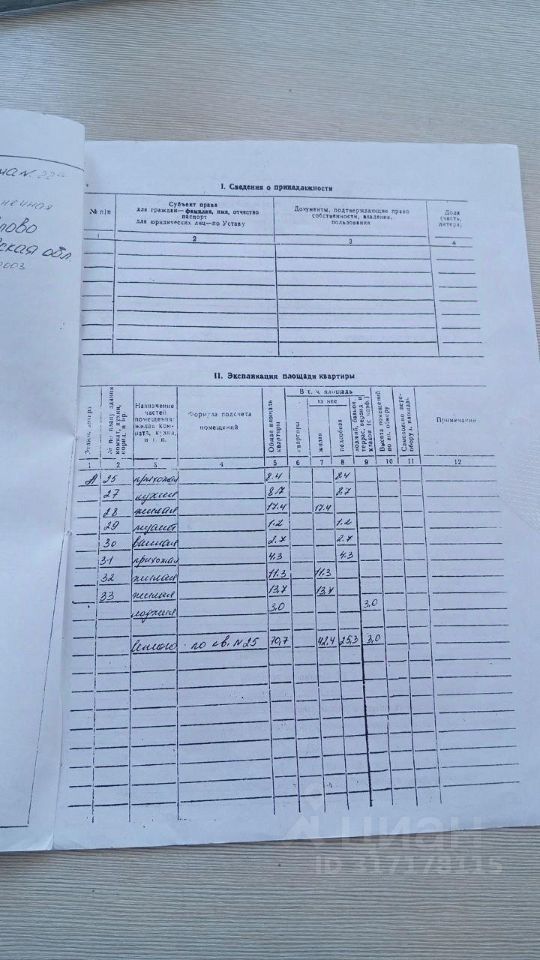 нечная
лово
ская обл
I. Сведения о принадлежности
№ п/п
Субъект права
для граждан—фамилия, имя, отчество
паспорт
для юридических лиц—по Уставу
Документы, подтверждающие право
собственности, владения,
пользования
Доля
(часть,
литера)
1 2 3 4
II. Экспликация площади квартиры
Назначение
частей
помещения:
жилая ком-
ната, кухня,
и т. п.
Формула подсчета
помещений
Общая площадь
квартиры
В т. ч. площадь
квартиры
из нее
жилая
подсобная
Высота помещений
по вн. обмеру
Примечание
1 2 3 4 5 6 7 8 9 10 11 12
А 25 прихожая 8.4 8.4
27 кухня 8.7 8.7
28 жилая 17.4 17.4
29 туалет 1.2 1.2
30 ванная 2.7 2.7
31 прихожая 4.3 4.3
32 жилая 11.3 11.3
33 жилая 13.7 13.7
лоджия 3,0 3,0
Итого по кв. N 25 70,7 42,4 25,3 3,0
циан
ID 317178115